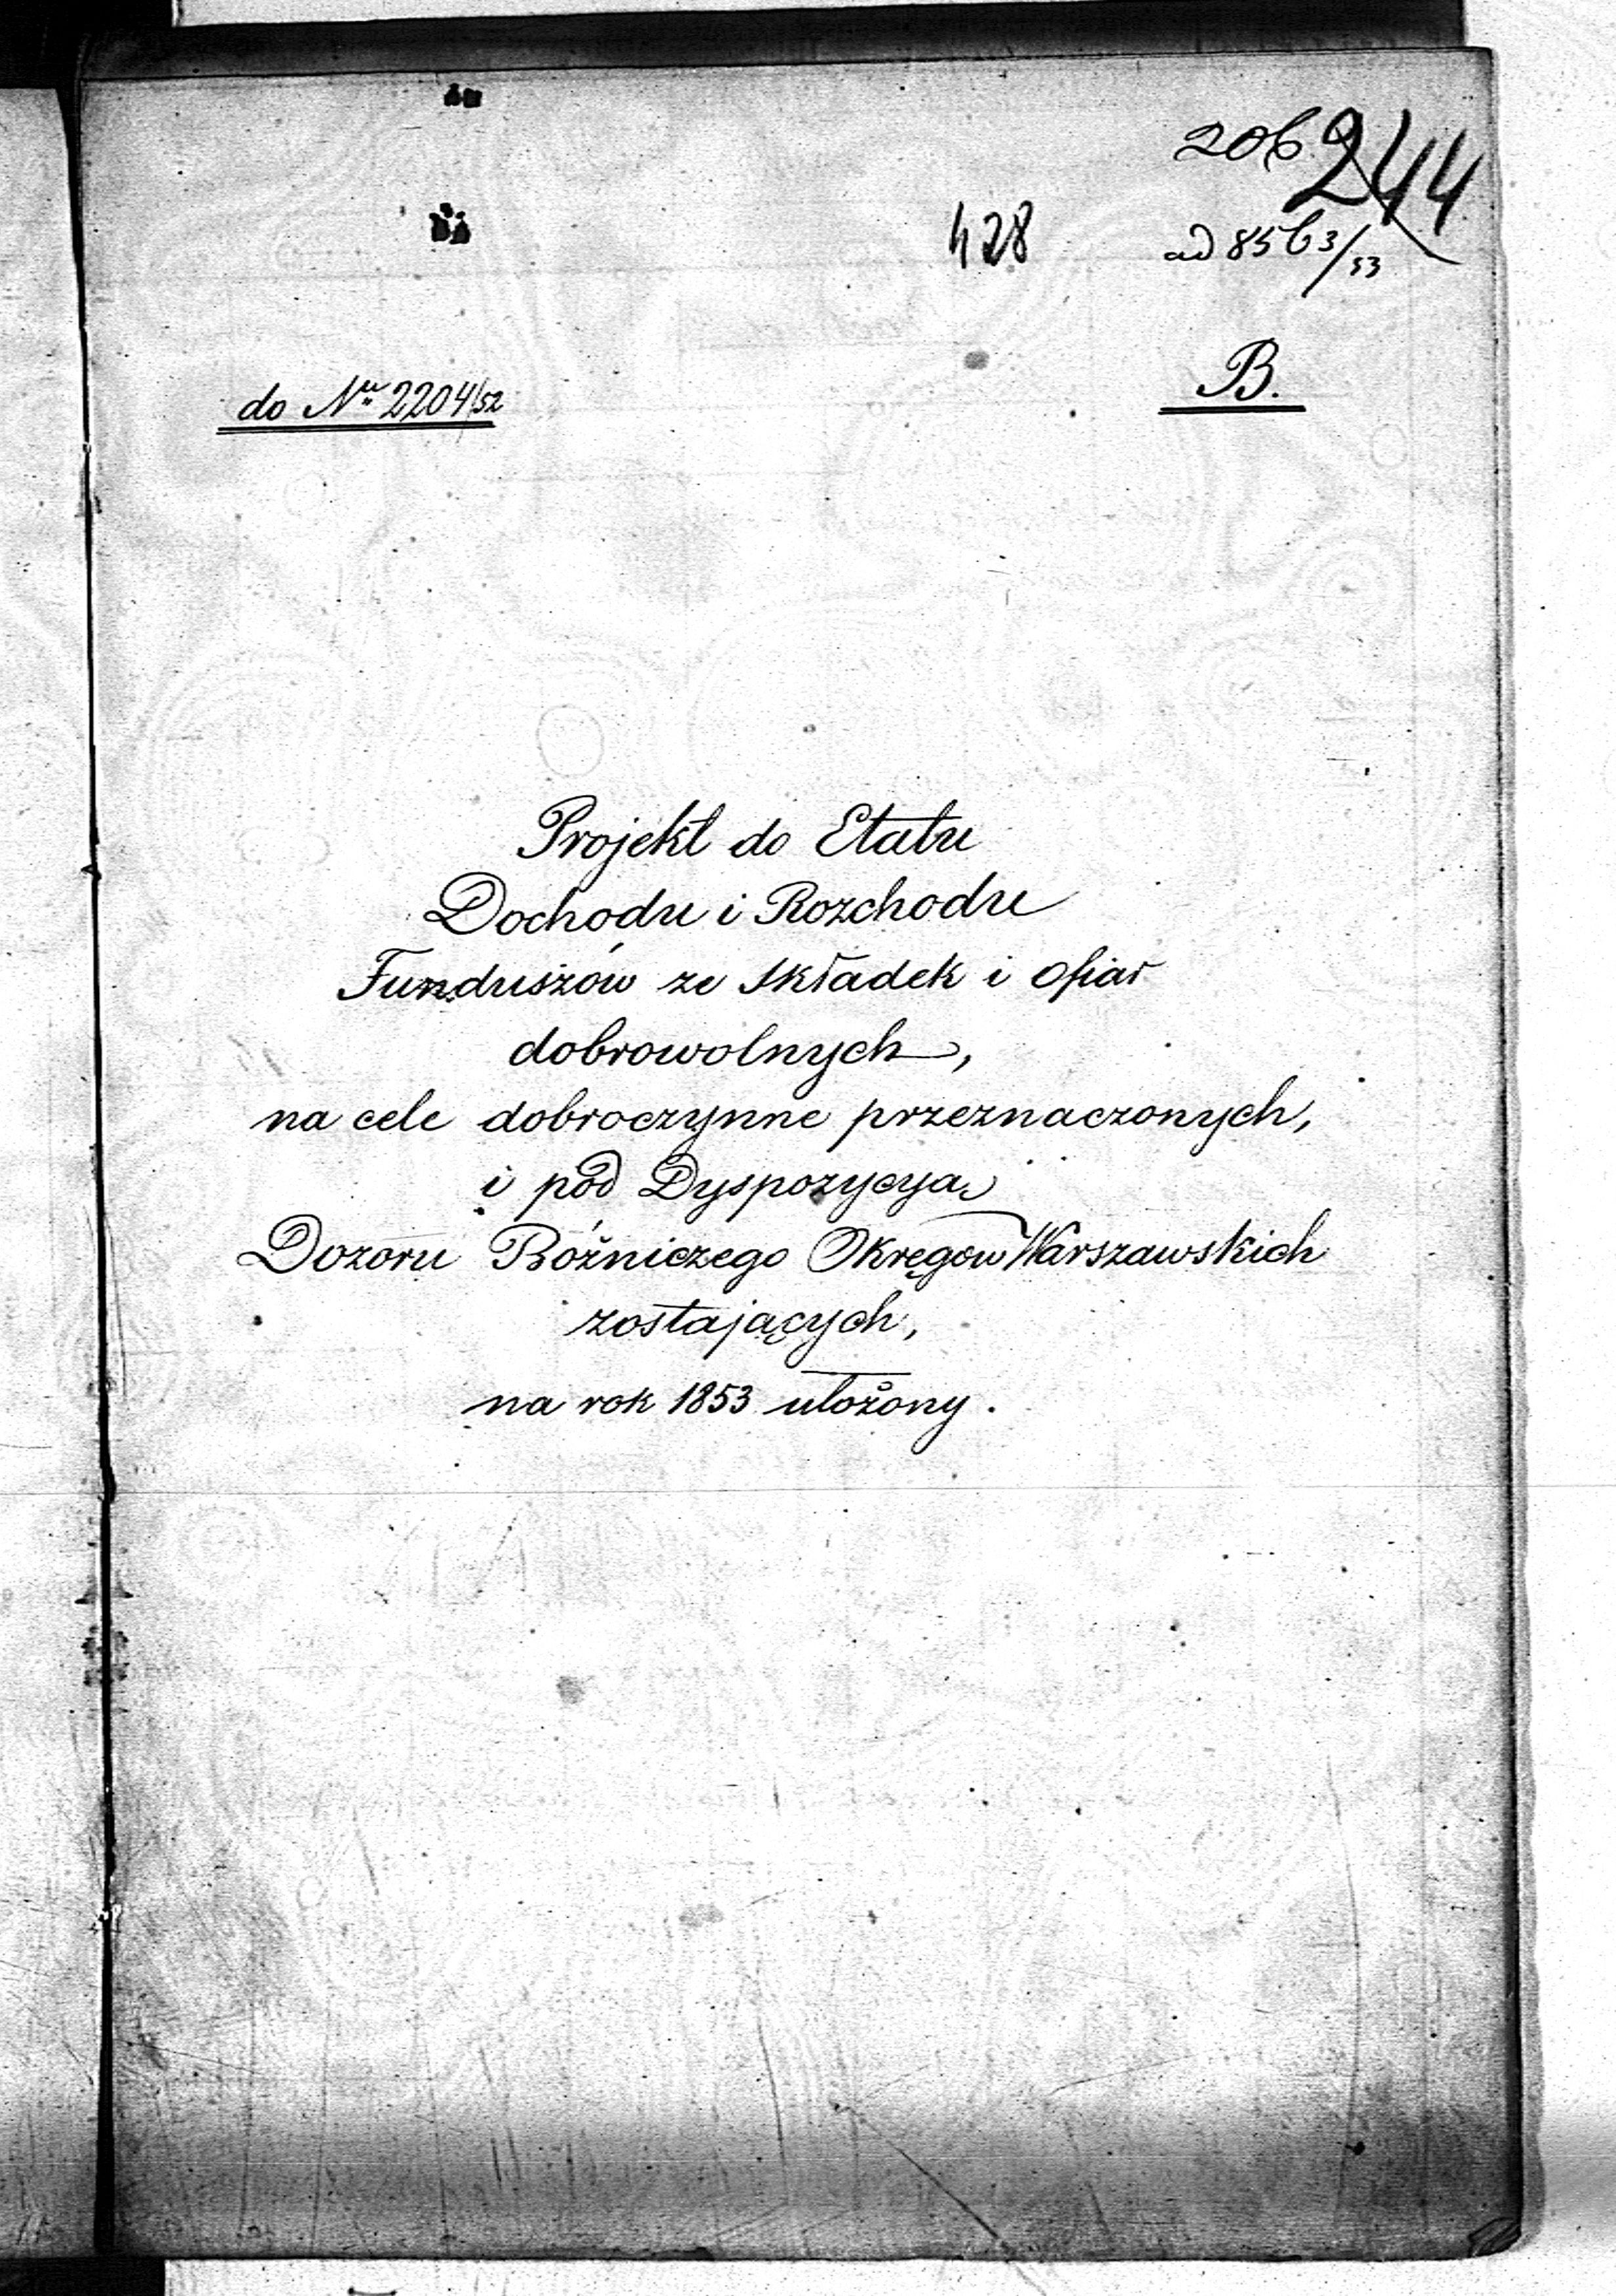 206 244
428
ad 8563/53
B.
do Nru 2204/52
Projekt do Etatu
Dochodu i Rozchodu
Funduszów ze składek i ofiar
dobrowolnych,
na cele dobroczynne przeznaczonych,
i pod Dyspozycyą
Dozoru Bóżniczego Okręgów Warszawskich
zostających,
na rok 1853 ułożony.